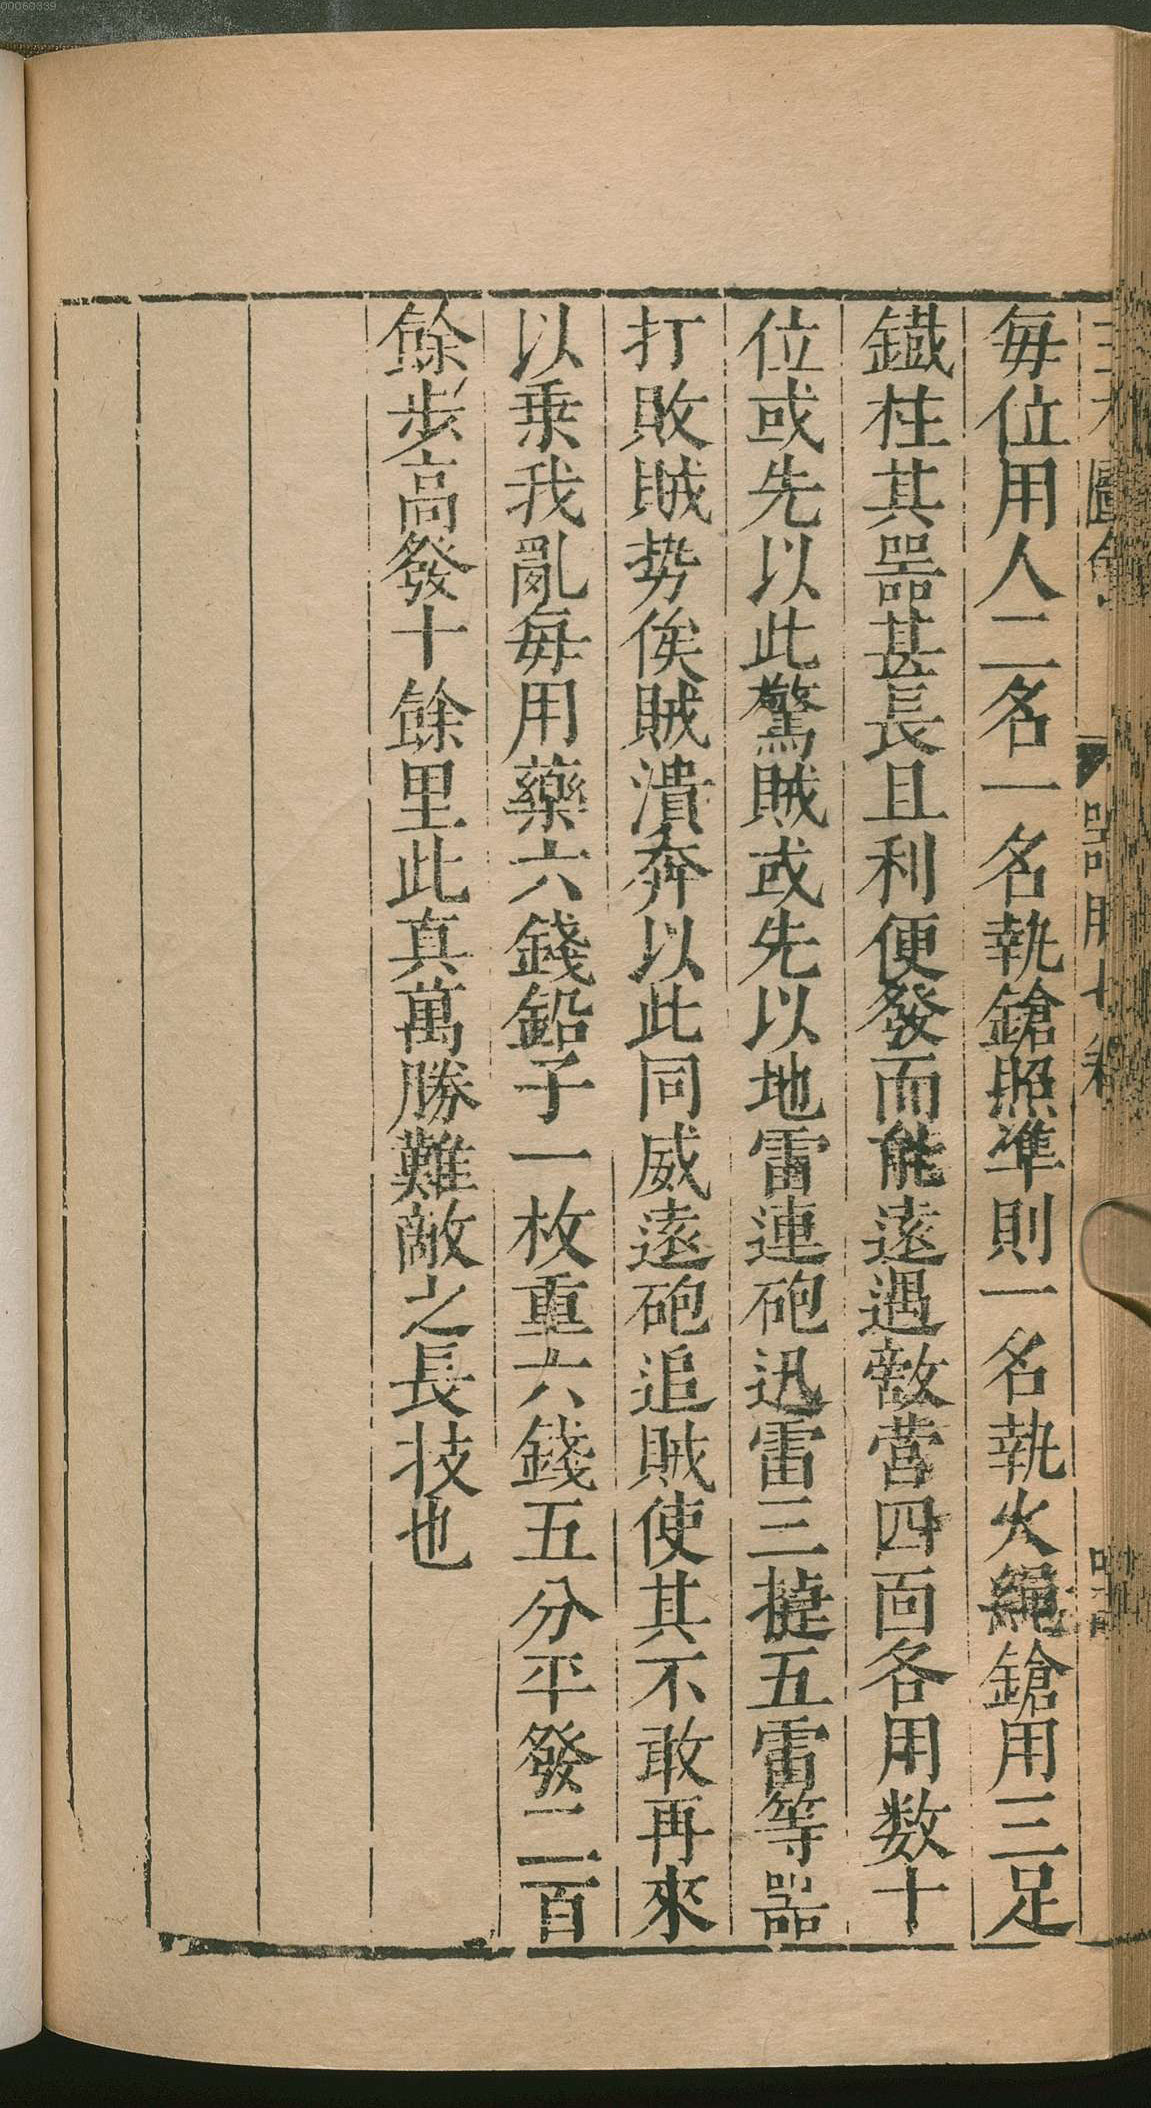 每位用人二名一名執鎗照準則一名執火繩鎗用三足
鐵柱其器甚長且利便發而能遠遇敵當四面各用数十
位或先以此驚賊或先以地雷連砲迅雷三㨗五雷等器
打敗賊势俟賊潰奔以此同威遠砲追賊使其不敢再來
以乗我亂每用藥六錢鉛子一枚重六錢五分平發二百
餘步高發十餘里此真萬勝難敵之長技也
00060339